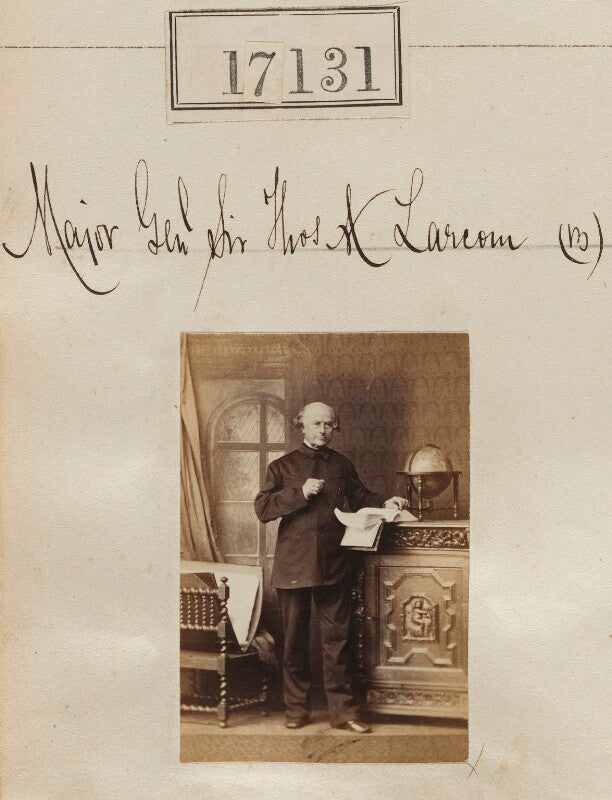 17131
Major Gen Sir Thos A Larcom (B)